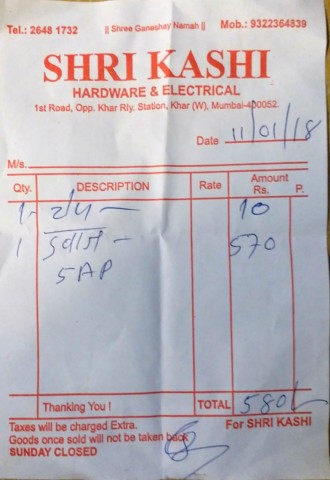 Tel.: 2648 1732 || Shree Ganeshay Namah || Mob.: 9322364839
SHRI KASHI
HARDWARE & ELECTRICAL
1st Road, Opp. Khar Rly. Station, Khar (W), Mumbai-400052.
Date 11/01/18
M/s.
Qty. DESCRIPTION Rate Amount Rs. P.
1 10
1 570
5AP
Thanking You ! TOTAL 580/-
Taxes will be charged Extra. For SHRI KASHI
Goods once sold will not be taken back
SUNDAY CLOSED